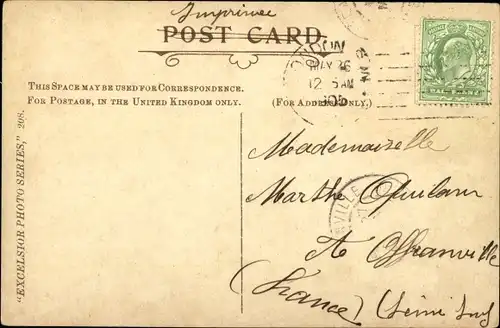 Imprimée
POST CARD.
LONDON
MAY 26
12 AM
05
THIS SPACE MAY BE USED FOR CORRESPONDENCE.
FOR POSTAGE, IN THE UNITED KINGDOM ONLY.
(FOR ADDRESS ONLY.)
"EXCELSIOR PHOTO SERIES," 208.
Mademoiselle
Marthe
A Offranville
(France) (Seine Inf)